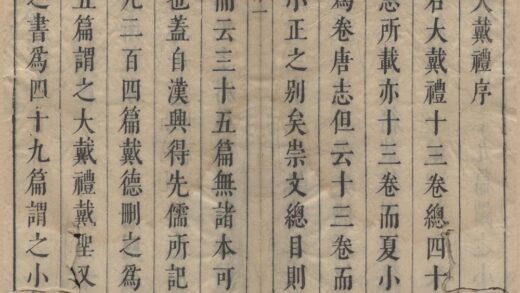 大戴禮序
右大戴禮十三卷總四十
志所載亦十三卷而夏小
爲卷唐志但云十三卷而
小正之别矣崇文總目則
一
而云三十五篇無諸本可
也蓋自漢興得先儒所記
凡二百四篇戴德刪之爲
五篇謂之大戴禮戴聖又
之書爲四十九篇謂之小